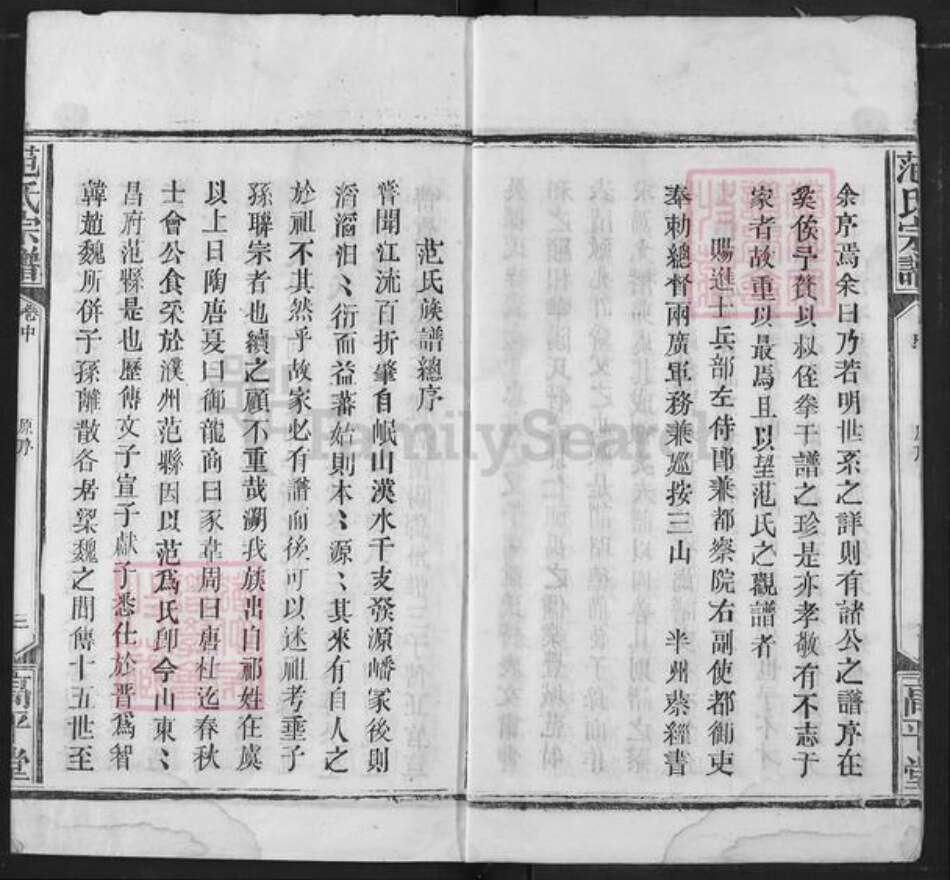 范氏宗譜
高平堂
余序焉余曰乃若明世系之詳則有諸公之譜序在
奚俟予贅以叔侄拳于譜之珍是亦孝敬有不忘于
家者故重以最焉且以望范氏之觀譜者
賜進士兵部左侍郎兼都察院右副使都御吏
奉勅總督兩廣軍務兼巡按三山 半州蔡經書
范氏族譜總序
嘗聞江流百折肇自岷山漢水千支發源嶓冢後則
滔滔汨〻衍而益蕃始則本〻源〻其來有自人之
於祖不其然乎故家必有譜而後可以述祖考垂子
孫聯宗者也續之顧不重哉溯我族出自祁姓在虞
以上曰陶唐夏曰御龍商曰豕韋周曰唐杜迄春秋
士會公食采於濮州范縣因以范爲氏卽今山東〻
昌府范縣是也歷傳文子宣子獻子悉仕於晉爲智
韓趙魏所併子孫離散各居梁魏之間傳十五世至
范氏宗譜
卷中
原序
三
高平堂
FamilySearch